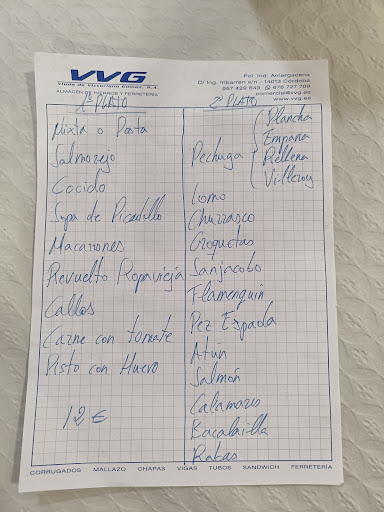 VVG
Viuda de Victoriano Gómez, S.A.
ALMACÉN DE HIERROS Y FERRETERÍA
Pol. Ind. Amargacena
C/ Ing. Iribarren s/n - 14013 Córdoba
957 429 643 676 727 709
comercial@vvg.es
www.vvg.es
1º PLATO
Mixta o Pasta
Salmorejo
Cocido
Sopa de Picadillo
Macarrones
Revuelto Ropavieja
Callos
Carne con tomate
Pisto con Huevo
12 €
2º PLATO
Pechuga
Plancha
Empana
Rellena
Villeroy
Lomo
Churrasco
Croquetas
Sanjacobo
Flamenquín
Pez Espada
Atún
Salmón
Calamares
Bacalailla
Rabas
CORRUGADOS MALLAZO CHAPAS VIGAS TUBOS SANDWICH FERRETERÍA